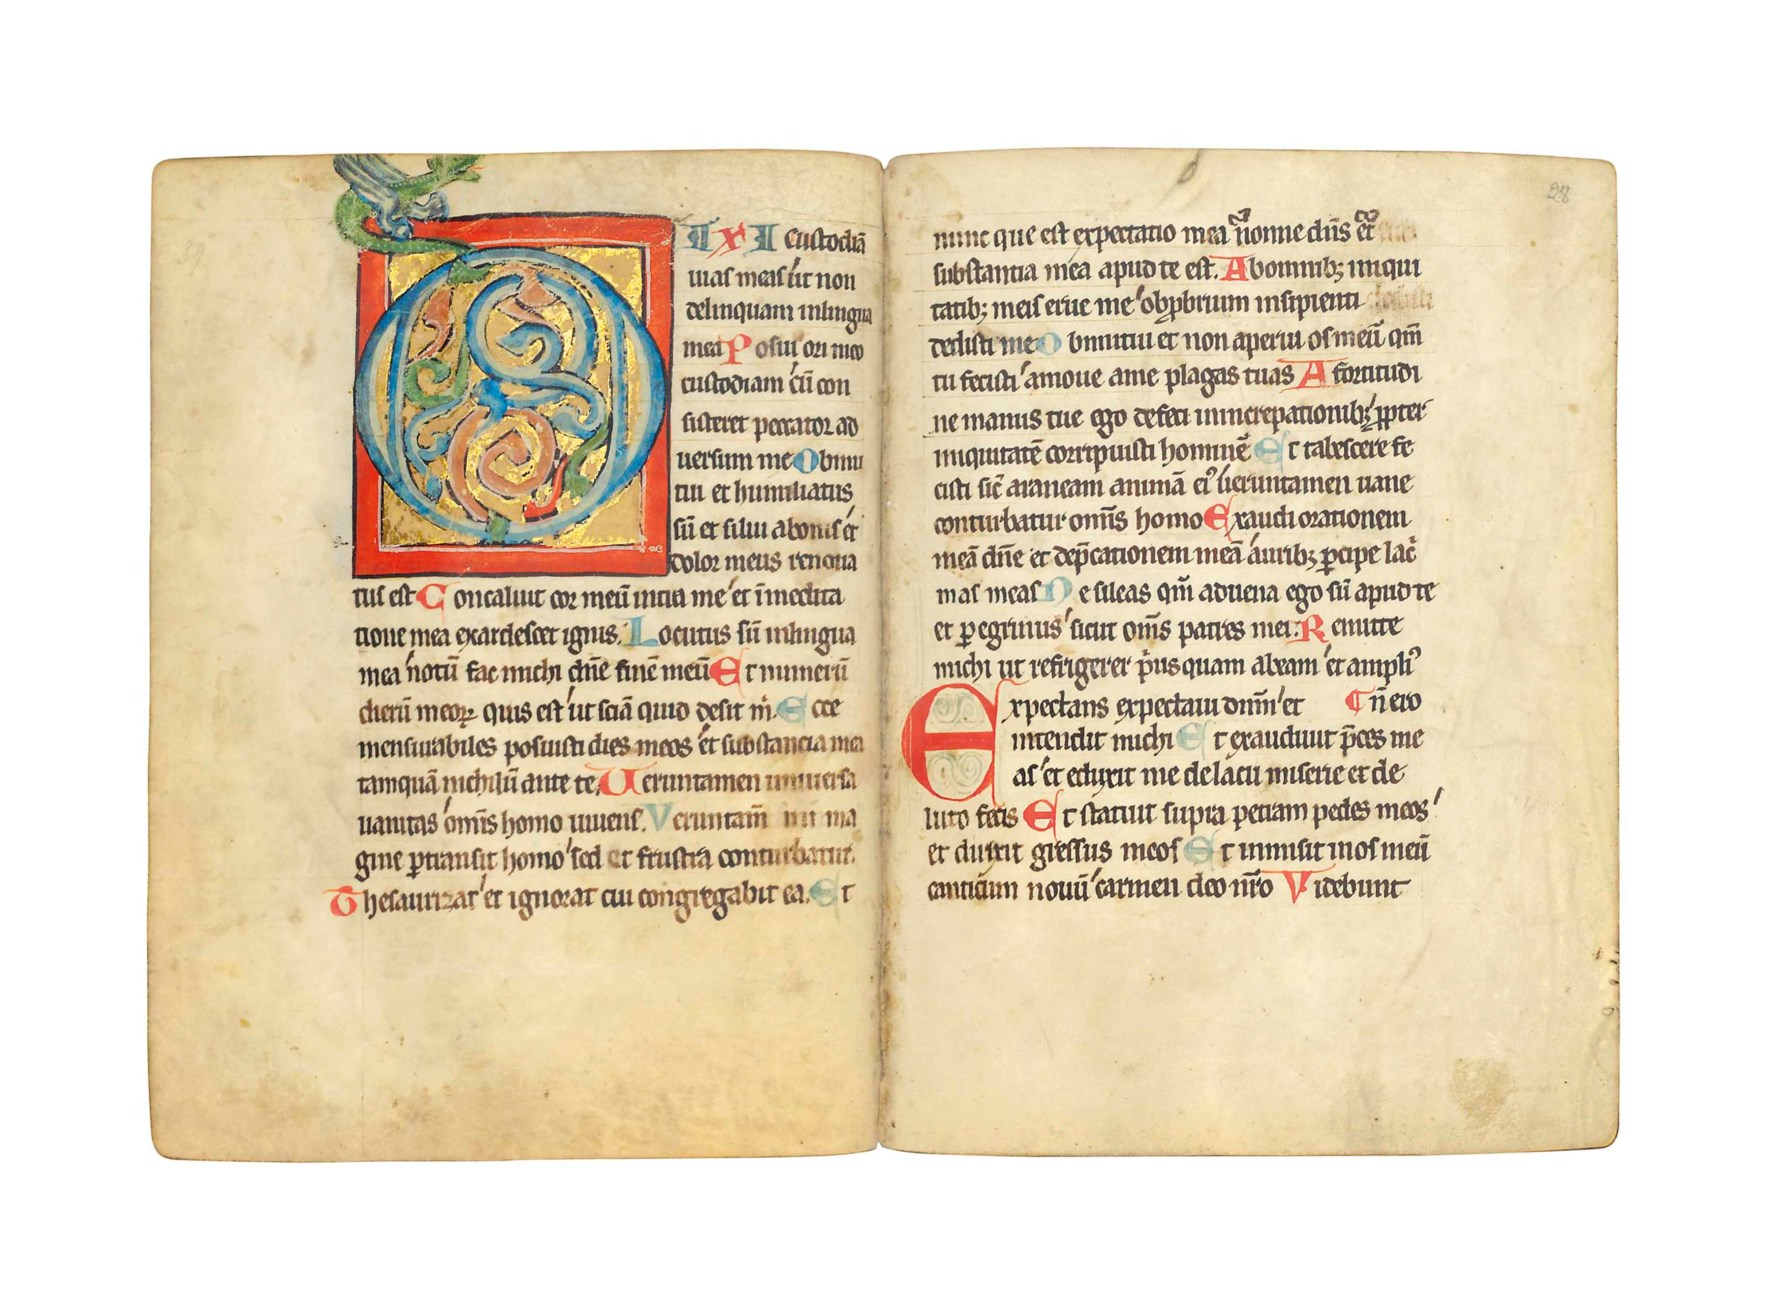 DIXI custodiā
uias meas ut non
delinquam inlingua
mea Posui ori meo
custodiam cū con
sisteret peccator ad
uersum me Obmu
tui et humiliatus
sū et silui abonis et
dolor meus renoua
tus est Concaluit cor meū intra me et ī medita
tione mea exardescet ignis. Locutus sū inlingua
mea notū fac michi dn̄e finē meū Et numerū
dierū meoꝝ quis est ut sciā quid desit m̄. Ecce
mensurabiles posuisti dies meos et substancia mea
tamquā nichilū ante te. Ueruntamen uniuersa
uanitas om̄s homo uiuens. Veruntam̄ in ima
gine ꝑtransit homo sed et frustra conturbatur.
Thesaurizat et ignorat cui congregabit ea. Et
28
nunc que est expectatio mea nonne dn̄s et
substantia mea apud te est. Abomnibꝫ iniqui
tatibꝫ meis erue me obꝓbrium insipienti
dedisti me Obmutui et non aperui os meū qm̄
tu fecisti amoue ame plagas tuas A fortitudi
ne manus tue ego defeci inincrepationibꝫ ꝓpter
iniquitatē corripuisti hominē Et tabescere fe
cisti sic̄ araneam animā eiꝰ ueruntamen uane
conturbatur om̄s homo Exaudi orationem
meā dn̄e et dep̄cationem meā auribꝫ ꝑcipe lac̄
mas meas Ne sileas qm̄ aduena ego sū apud te
et ꝑegrinus sicut om̄s patres mei. Remitte
michi ut refrigerer p̄usquam abeam et ampliꝰ
Expectans expectaui dn̄m et ¶ n̄ ero
intendit michi Et exaudiuit p̄ces me
as et eduxit me delacu miserie et de
luto fecis Et statuit supra petram pedes meos
et direxit gressus meos Et inmisit inos meū
canticum nouū carmen deo nr̄o Videbunt